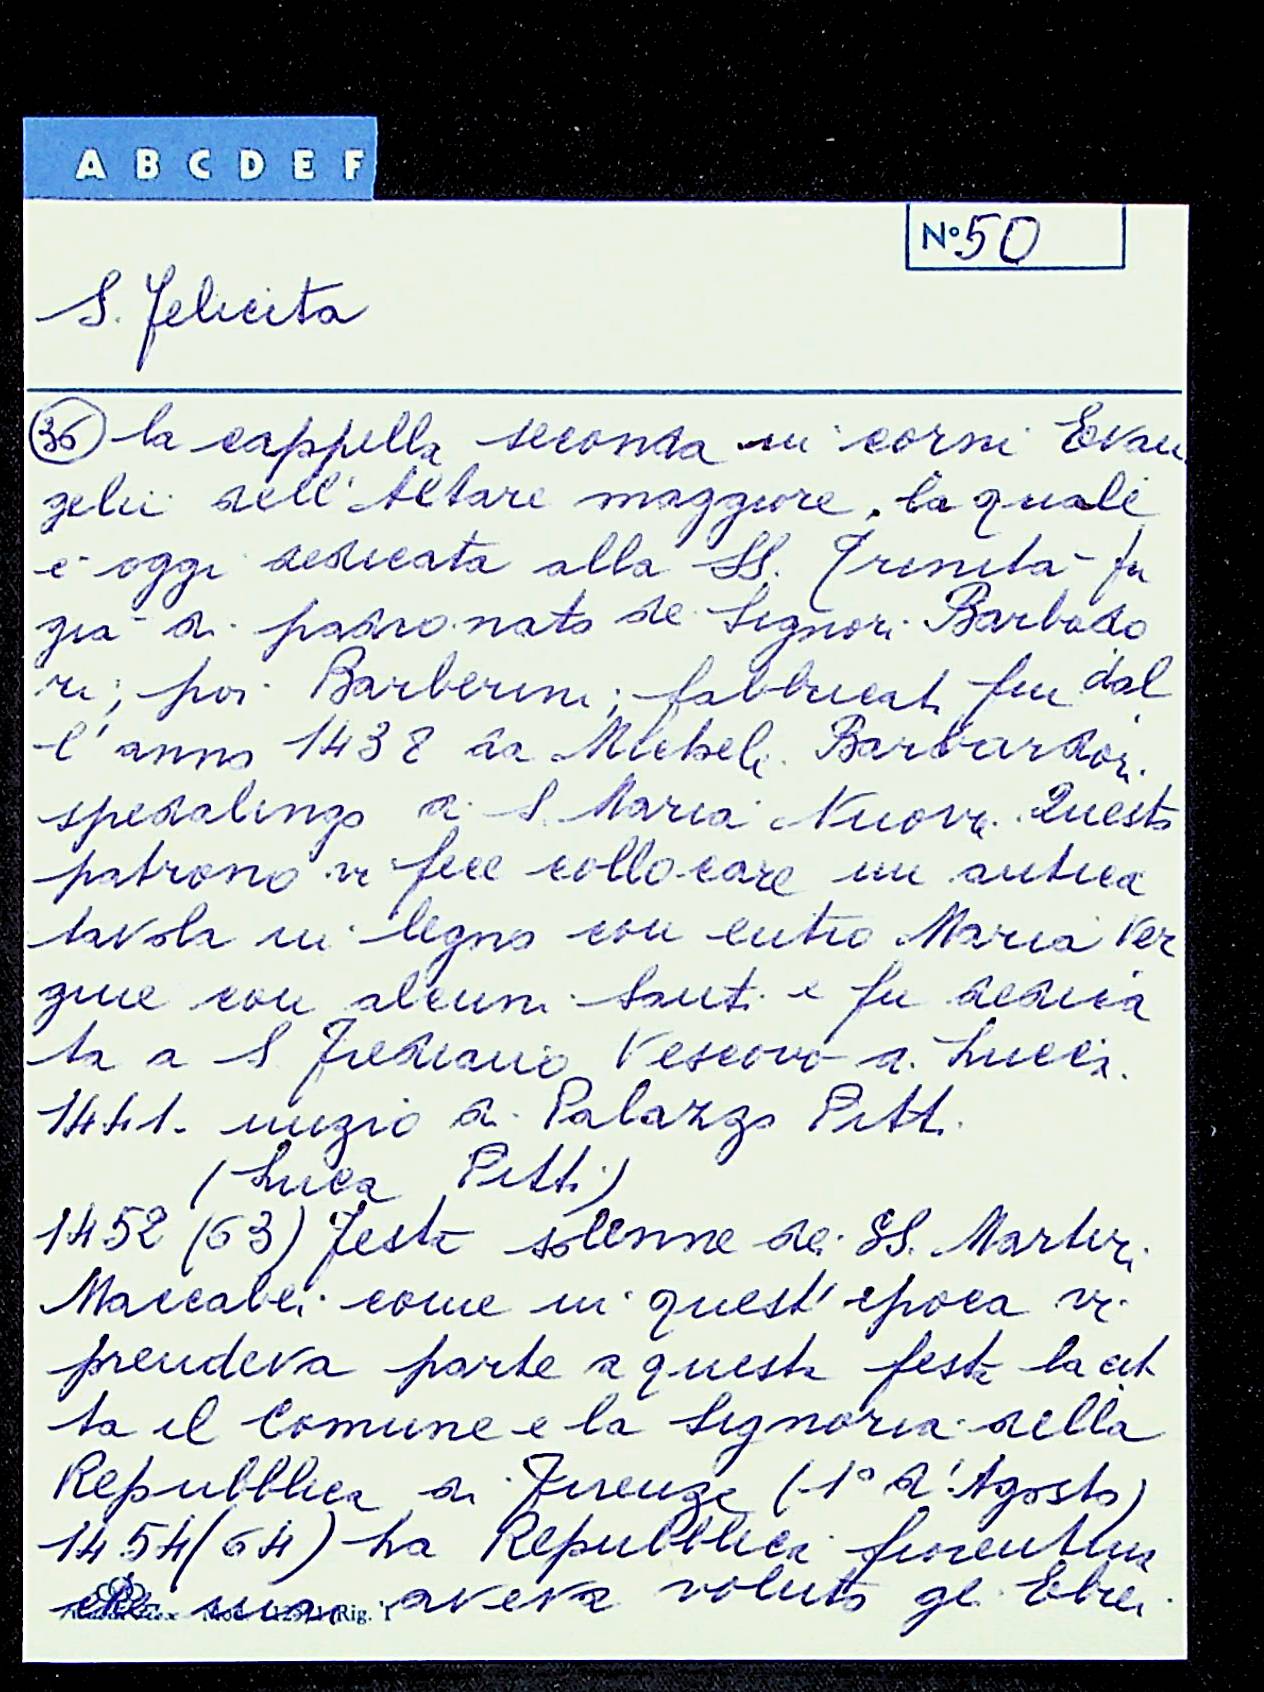 A B C D E F
N° 50
S. Felicita
36 la cappella seconda in corni Evan
gelii dell'Altare maggiore, la quale
è oggi dedicata alla SS. Trinità fu
già di padronato de Signori Barbado
ri; poi Barberini; fabbricata fin dal
l'anno 1438 da Michele Barbardori
spedalingo di S. Maria Nuova. Questo
patrono vi fece collocare un antica
tavola in legno con entro Maria Ver
gine con alcuni Santi e fu dedica
ta a S Frediano Vescovo di Lucca.
1441. inizio di Palazzo Pitti.
(Luca Pitti)
1452 (63) Festa solenne dei SS. Martiri
Maccabei come in quest'epoca vi
prendeva parte a questa festa la cit
tà il Comune e la Signoria della
Repubblica di Firenze (1° d'Agosto)
1454 (64) La Repubblica fiorentina
che non aveva voluto gli Ebrei
Rig. 1